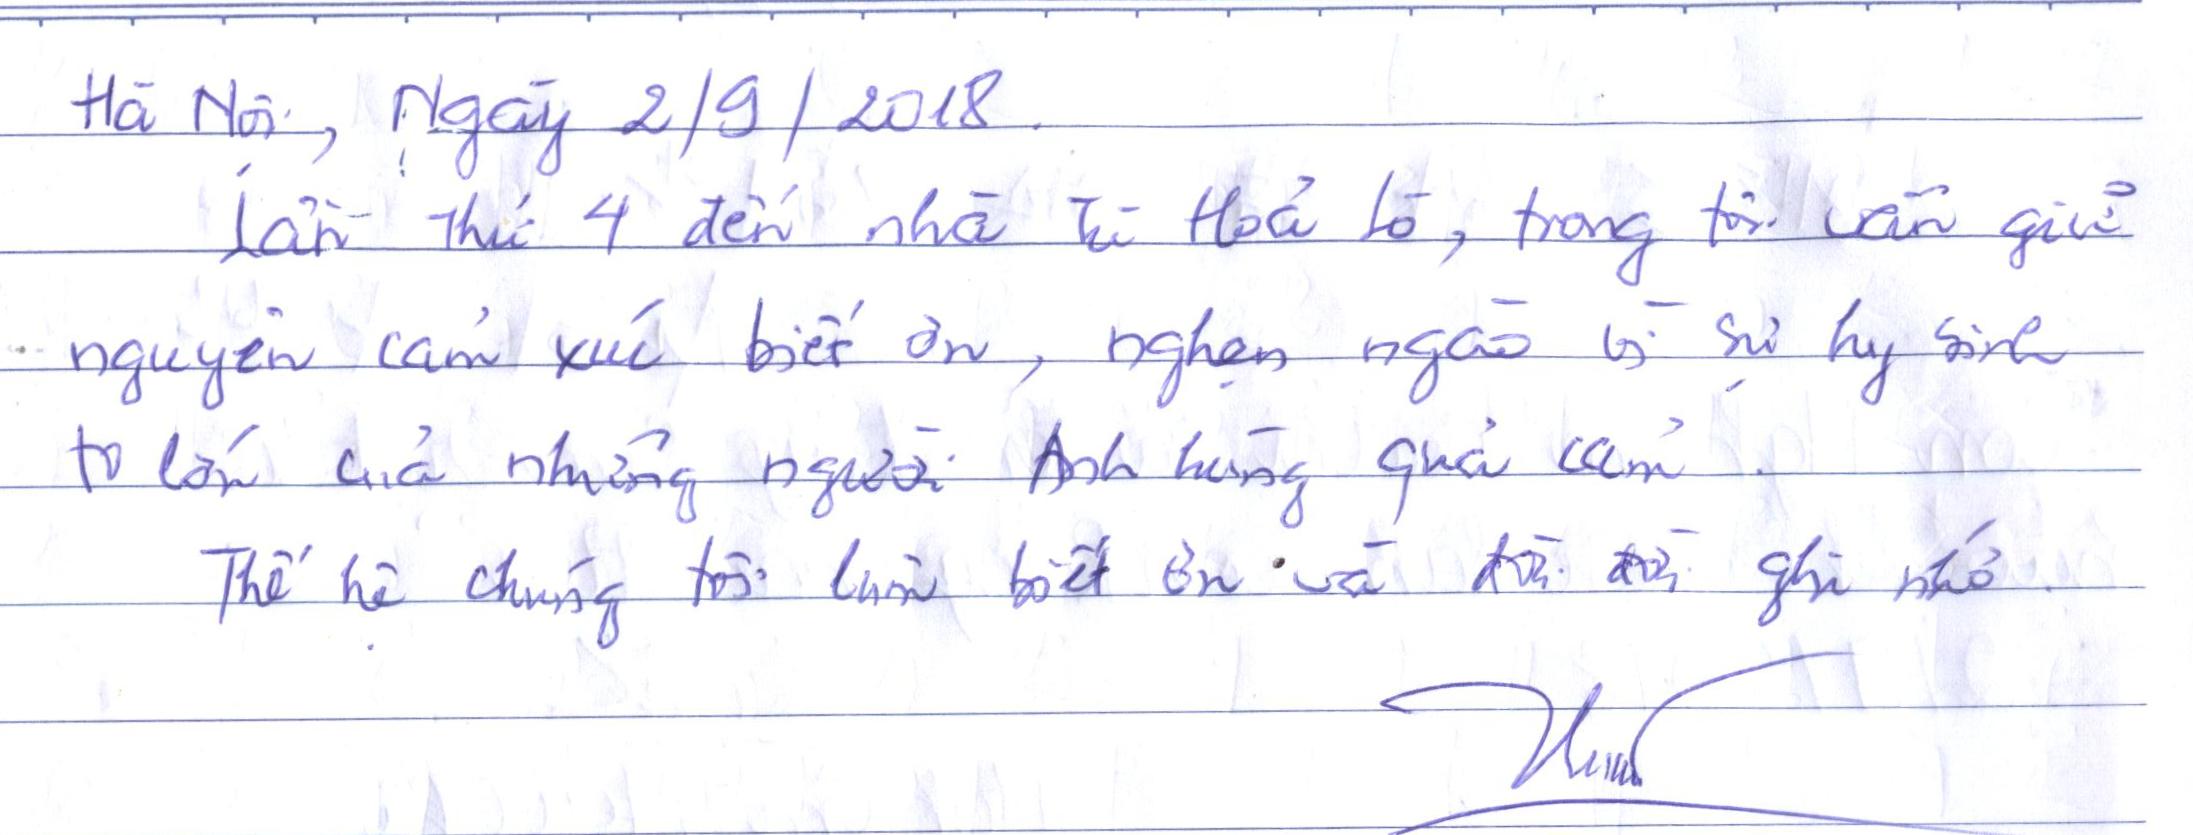 Hà Nội, Ngày 2/9/2018.
Lần thứ 4 đến nhà tù Hoả Lò, trong tôi vẫn giữ
nguyên cảm xúc biết ơn, nghẹn ngào vì sự hy sinh
to lớn của những người Anh hùng quả cảm.
Thế hệ chúng tôi luôn biết ơn và đời đời ghi nhớ.